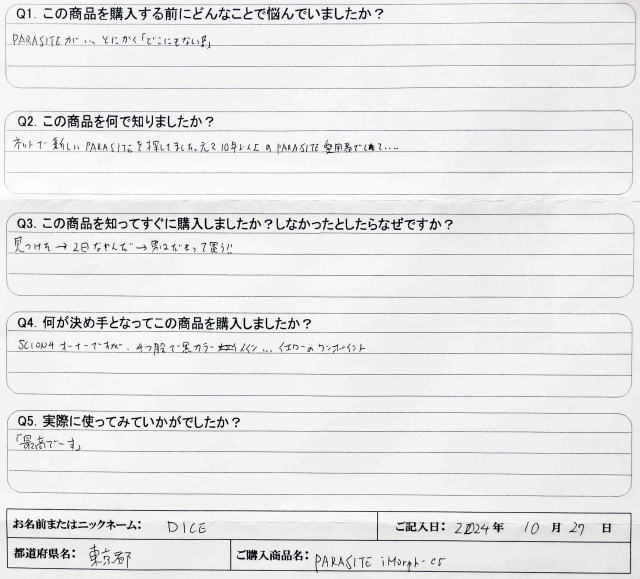 Q1. この商品を購入する前にどんなことで悩んでいましたか？
PARASITEが、、とにかく「どこにもない!!」
Q2. この商品を何で知りましたか？
ネットで新しいPARASITEを探してました。元々10年以上のPARASITE愛用者でして....
Q3. この商品を知ってすぐに購入しましたか？しなかったとしたらなぜですか？
見つけた→2日なやんだ→男はだまって買う!!
Q4. 何が決め手となってこの商品を購入しましたか？
SCION4オーナーですが、4つ股で黒カラーメイン...イエローのワンポイント
Q5. 実際に使ってみていかがでしたか？
「最高でーす」
お名前またはニックネーム： DICE ご記入日： 2024年 10月27日
都道府県名： 東京都 ご購入商品名： PARASITE iMorph-c5